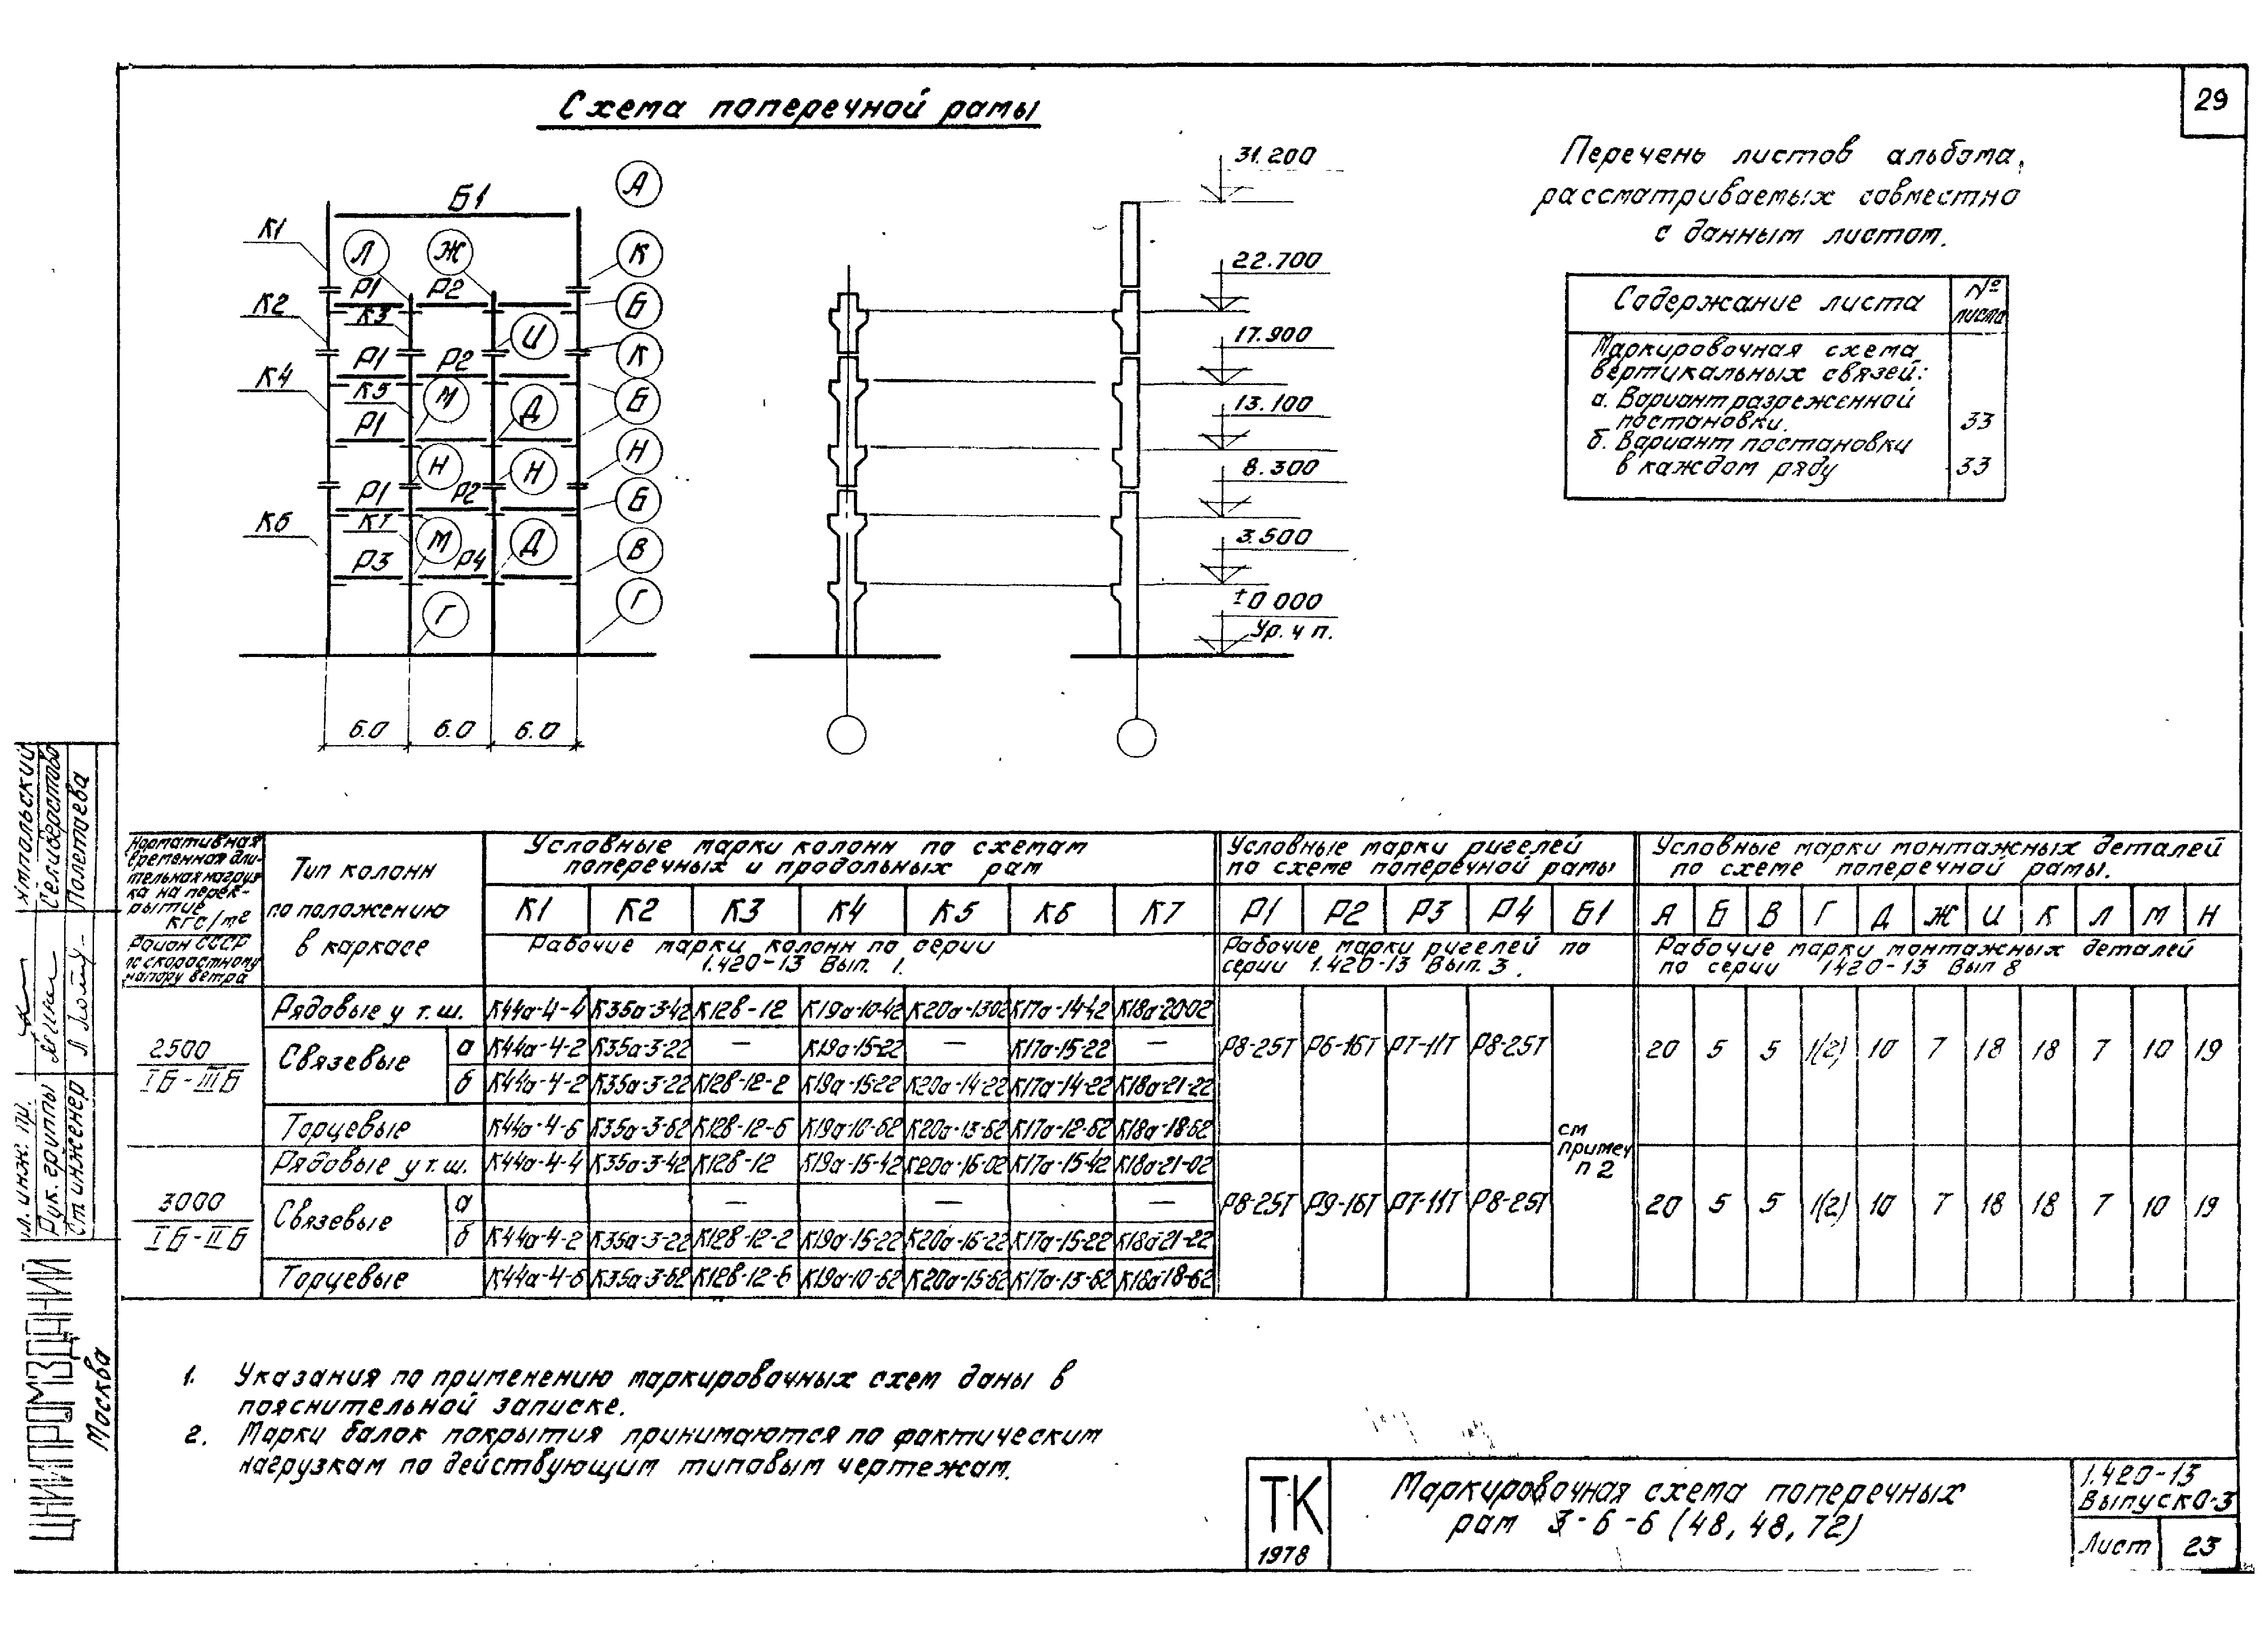 29
Схема поперечной рамы
Б1
К1
К2
К4
К6
Л
Ж
Р1
Р2
К3
И
Р1
Р2
К5
М
Д
Р1
Н
Н
Р1
Р2
К7
М
Д
Р3
Р4
Г
А
К
Б
К
Б
Н
Б
В
Г
6.0
6.0
6.0
31.200
22.700
17.900
13.100
8.300
3.500
±0 000
Ур. ч п.
Перечень листов альбома,
рассматриваемых совместно
с данным листом.
Содержание листа
№ листа
Маркировочная схема
вертикальных связей:
а. Вариант разреженной
постановки.
33
б. Вариант постановки
в каждом ряду
33
Нормативная
временная дли-
тельная нагруз-
ка на перек-
рытие
кгс/м²
Район СССР
по скоростному
напору ветра
Тип колонн
по положению
в каркасе
Условные марки колонн по схемам
поперечных и продольных рам
К1 К2 К3 К4 К5 К6 К7
Рабочие марки колонн по серии
1.420-13 Вып. 1.
Условные марки ригелей
по схеме поперечной рамы
Р1 Р2 Р3 Р4 Б1
Рабочие марки ригелей по
серии 1.420-13 Вып. 3.
Условные марки монтажных деталей
по схеме поперечной рамы.
А Б В Г Д Ж И К Л М Н
Рабочие марки монтажных деталей
по серии 1420-13 Вып 8
2500
IБ-IIIБ
Рядовые у т.ш. К44а-4-4 К35а-3-42 К12в-12 К19а-10-42 К20а-13-02 К17а-14-42 К18а-20-02
Связевые
а К44а-4-2 К35а-3-22 — К19а-15-22 — К17а-15-22 —
б К44а-4-2 К35а-3-22 К12в-12-2 К19а-15-22 К20а-14-22 К17а-14-22 К18а-21-22
Торцевые К44а-4-6 К35а-3-62 К12в-12-6 К19а-10-62 К20а-13-62 К17а-12-62 К18а-18-62
Р8-25Т Р6-16Т Р7-11Т Р8-25Т
20 5 5 1(2) 10 7 18 18 7 10 19
см
примеч
п 2
3000
IБ-IIБ
Рядовые у т.ш. К44а-4-4 К35а-3-42 К12в-12 К19а-15-42 К20а-16-02 К17а-15-42 К18а-21-02
Связевые
а — — —
б К44а-4-2 К35а-3-22 К12в-12-2 К19а-15-22 К20а-16-22 К17а-15-22 К18а-21-22
Торцевые К44а-4-6 К35а-3-62 К12в-12-6 К19а-10-62 К20а-15-62 К17а-13-62 К18а-18-62
Р8-25Т Р9-16Т Р7-11Т Р8-25Т
20 5 5 1(2) 10 7 18 18 7 10 19
1. Указания по применению маркировочных схем даны в
пояснительной записке.
2. Марки балок покрытия принимаются по фактическим
нагрузкам по действующим типовым чертежам.
ТК
1978
Маркировочная схема поперечных
рам 3-6-6 (48, 48, 72)
1.420-13
Выпуск 0-3
Лист 23
Гл. инж. пр.
Рук. группы Селиверстова
Ст инженер Полетаева
ЦНИИПРОМЗДАНИЙ
Москва